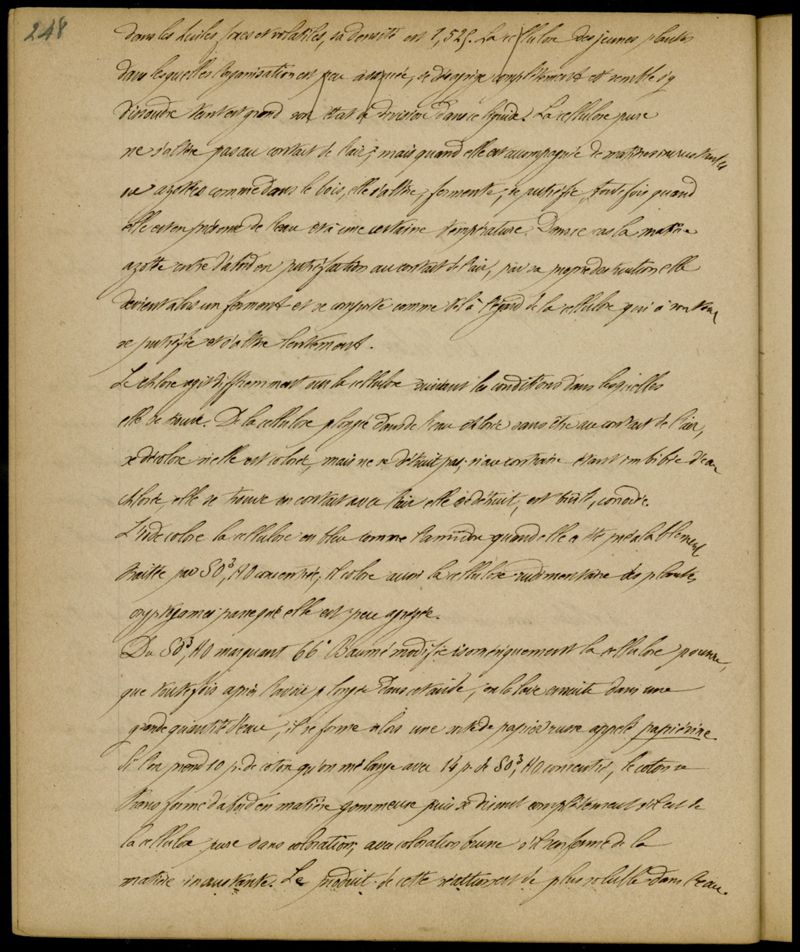 248
dans les huiles fixes et volatiles, sa densité est 1,525. La cellulose des jeunes plantes
dans lesquelles l'organisation est peu avancée, se désagrège complètement et semble s'y
dissoudre tant est grand son état de division dans ce liquide. La cellulose pure
ne s'altère pas au contact de l'air; mais quand elle est accompagnée de matières incrustantes
azotées comme dans le bois, elle s'altère, fermente, se putréfie, toutefois quand
elle est en présence de l'eau et à une certaine température. Dans ce cas la matière
azotée entre d'abord en putréfaction au contact de l'air, par sa propre destruction elle
devient alors un ferment et se comporte comme tel à l'égard de la cellulose qui à son tour
se putréfie et s'altère lentement.
Le chlore agit différemment sur la cellulose suivant les conditions dans lesquelles
elle se trouve. De la cellulose plongée dans de l'eau chlorée sans être au contact de l'air,
se décolore si elle est colorée, mais ne se détruit pas; si au contraire étant imbibée d'eau
chlorée, elle se trouve en contact avec l'air elle se détruit, est brûlée, corrodée.
L'iode colore la cellulose en bleu comme l'amidon quand elle a été préalablement
traitée par SO³,HO concentré; il colore aussi la cellulose rudimentaire des plantes
cryptogames parce que elle est peu agrégée.
Du SO³,HO marquant 66° Baumé modifie isomériquement la cellulose pourvu,
que toutefois après l'avoir plongée dans cet acide, on la lave ensuite dans une
grande quantité d'eau; il se forme alors une sorte de papier appelé papyrine
Si l'on prend 10 p. de coton qu'on mélange avec 14 p. de SO³,HO concentré, le coton se
transforme d'abord en matière gommeuse puis se dissout complètement s'il est de
la cellulose pure sans coloration; avec coloration brune s'il renferme de la
matière incrustante. Le produit de cette réaction est de plus soluble dans l'eau.